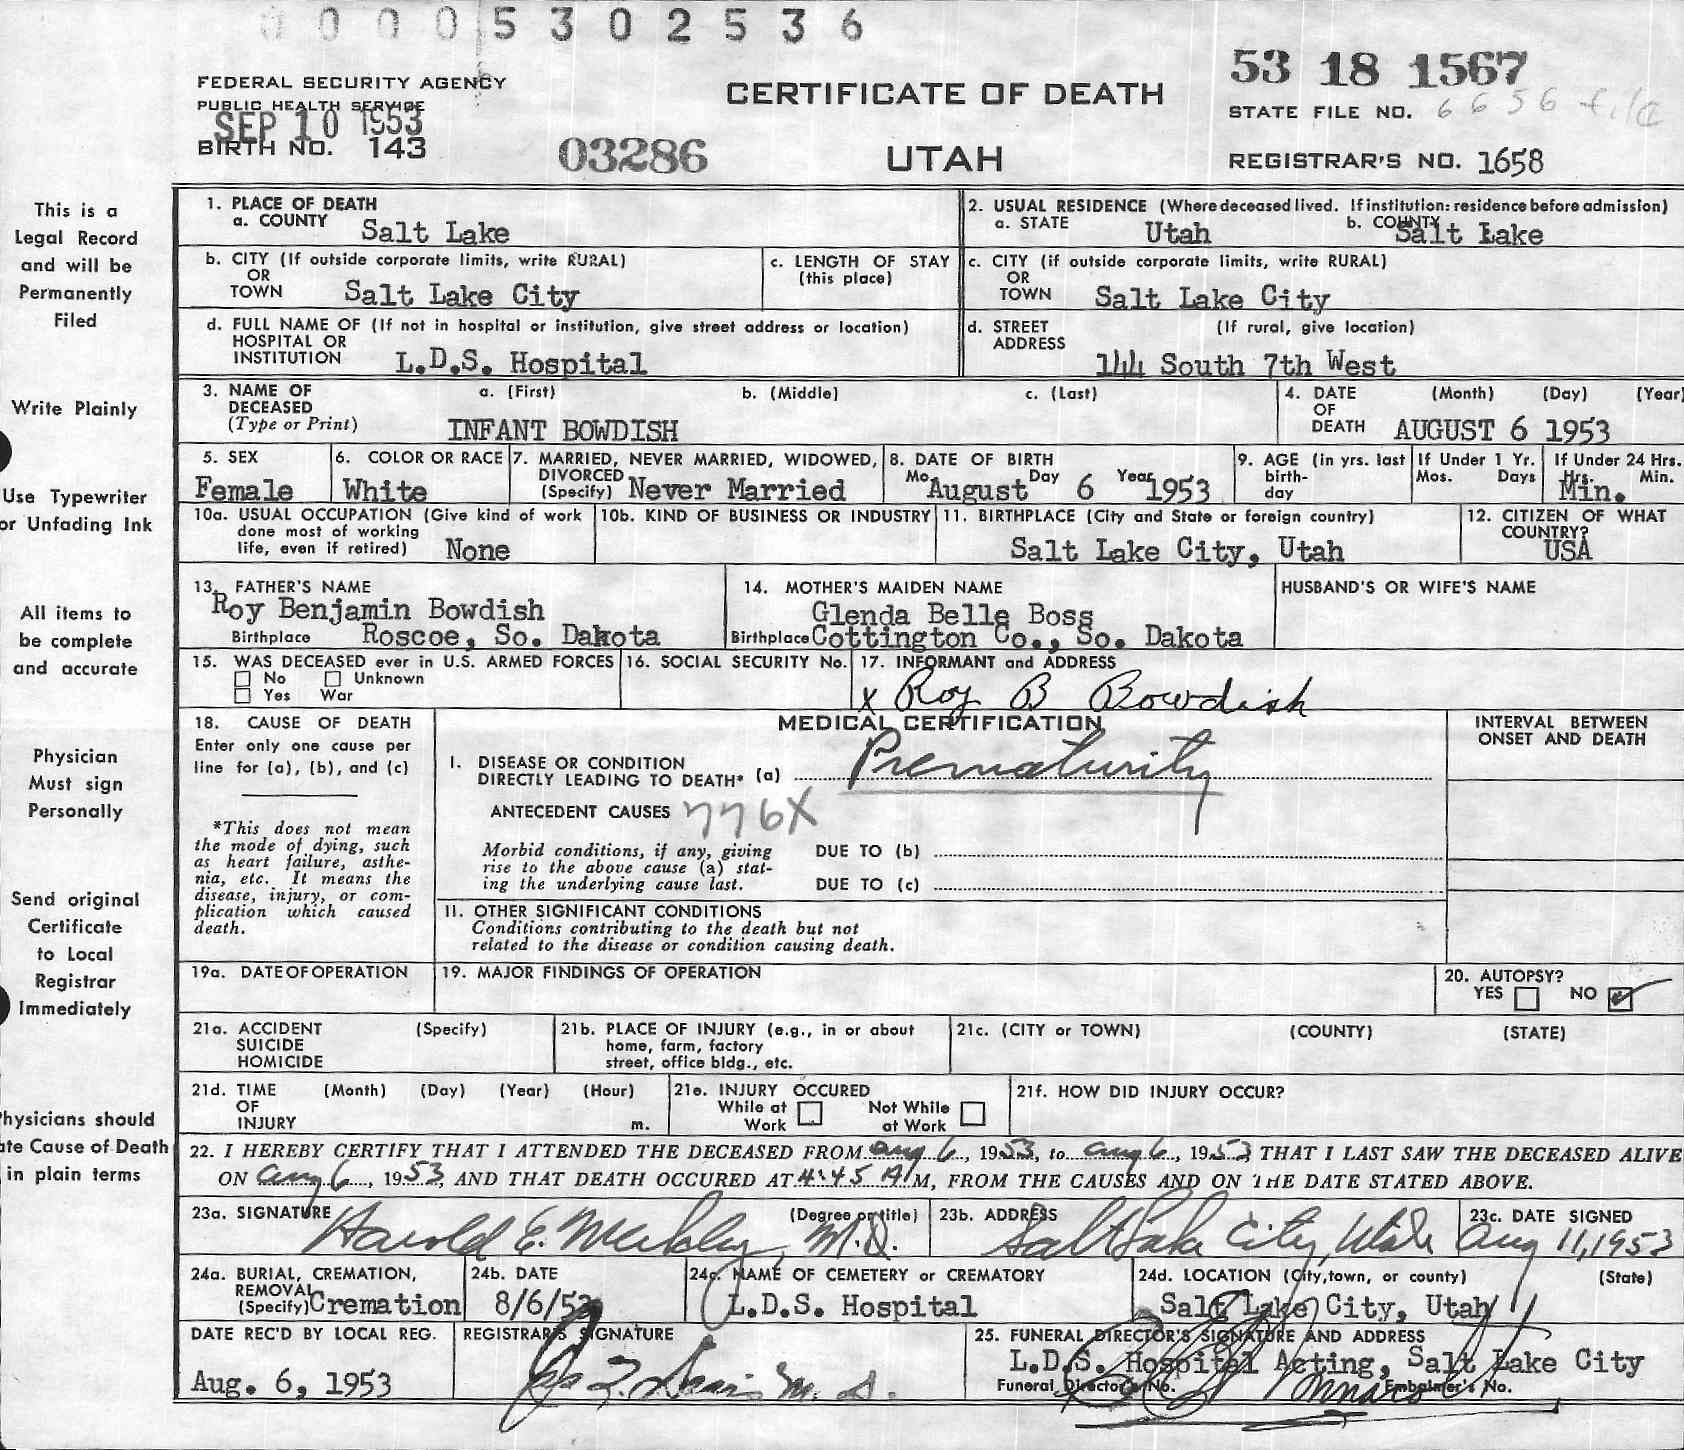 0005302536
53 18 1567
FEDERAL SECURITY AGENCY
PUBLIC HEALTH SERVICE
SEP 10 1953
BIRTH NO. 143
03286
CERTIFICATE OF DEATH
UTAH
STATE FILE NO. 6656 file
REGISTRAR'S NO. 1658
This is a
Legal Record
and will be
Permanently
Filed
Write Plainly
Use Typewriter
or Unfading Ink
All items to
be complete
and accurate
Physician
Must sign
Personally
Send original
Certificate
to Local
Registrar
Immediately
hysicians should
te Cause of Death
in plain terms
1. PLACE OF DEATH
a. COUNTY Salt Lake
2. USUAL RESIDENCE (Where deceased lived. If institution: residence before admission)
a. STATE Utah b. COUNTY Salt Lake
b. CITY (If outside corporate limits, write RURAL)
OR
TOWN Salt Lake City
c. LENGTH OF STAY
(this place)
c. CITY (if outside corporate limits, write RURAL)
OR
TOWN Salt Lake City
d. FULL NAME OF (If not in hospital or institution, give street address or location)
HOSPITAL OR
INSTITUTION L.D.S. Hospital
d. STREET (If rural, give location)
ADDRESS
144 South 7th West
3. NAME OF a. (First) b. (Middle) c. (Last)
DECEASED
(Type or Print) INFANT BOWDISH
4. DATE (Month) (Day) (Year)
OF
DEATH AUGUST 6 1953
5. SEX
Female
6. COLOR OR RACE
White
7. MARRIED, NEVER MARRIED, WIDOWED,
DIVORCED
(Specify) Never Married
8. DATE OF BIRTH
Mo. August Day 6 Year 1953
9. AGE (in yrs. last
birth-
day
If Under 1 Yr.
Mos. Days
If Under 24 Hrs.
Hrs. Min.
Min.
10a. USUAL OCCUPATION (Give kind of work
done most of working
life, even if retired) None
10b. KIND OF BUSINESS OR INDUSTRY
11. BIRTHPLACE (City and State or foreign country)
Salt Lake City, Utah
12. CITIZEN OF WHAT
COUNTRY?
USA
13. FATHER'S NAME
Roy Benjamin Bowdish
Birthplace Roscoe, So. Dakota
14. MOTHER'S MAIDEN NAME
Glenda Belle Boss
Birthplace Cottington Co., So. Dakota
HUSBAND'S OR WIFE'S NAME
15. WAS DECEASED ever in U.S. ARMED FORCES
No Unknown
Yes War
16. SOCIAL SECURITY No.
17. INFORMANT and ADDRESS
x Roy B Bowdish
18. CAUSE OF DEATH
Enter only one cause per
line for (a), (b), and (c)
*This does not mean
the mode of dying, such
as heart failure, asthe-
nia, etc. It means the
disease, injury, or com-
plication which caused
death.
MEDICAL CERTIFICATION
INTERVAL BETWEEN
ONSET AND DEATH
I. DISEASE OR CONDITION
DIRECTLY LEADING TO DEATH* (a) Prematurity
ANTECEDENT CAUSES 776X
Morbid conditions, if any, giving
rise to the above cause (a) stat-
ing the underlying cause last.
DUE TO (b)
DUE TO (c)
II. OTHER SIGNIFICANT CONDITIONS
Conditions contributing to the death but not
related to the disease or condition causing death.
19a. DATE OF OPERATION
19. MAJOR FINDINGS OF OPERATION
20. AUTOPSY?
YES NO
21a. ACCIDENT (Specify)
SUICIDE
HOMICIDE
21b. PLACE OF INJURY (e.g., in or about
home, farm, factory
street, office bldg., etc.
21c. (CITY or TOWN) (COUNTY) (STATE)
21d. TIME (Month) (Day) (Year) (Hour)
OF
INJURY m.
21e. INJURY OCCURED
While at Work Not While at Work
21f. HOW DID INJURY OCCUR?
22. I HEREBY CERTIFY THAT I ATTENDED THE DECEASED FROM Aug 6, 1953, to Aug 6, 1953, THAT I LAST SAW THE DECEASED ALIVE
ON Aug 6, 1953, AND THAT DEATH OCCURED AT 4:45 A M, FROM THE CAUSES AND ON THE DATE STATED ABOVE.
23a. SIGNATURE (Degree or title)
Harold E. M.D.
23b. ADDRESS
Salt Lake City, Utah
23c. DATE SIGNED
Aug 11, 1953
24a. BURIAL, CREMATION,
REMOVAL
(Specify) Cremation
24b. DATE
8/6/53
24c. NAME OF CEMETERY or CREMATORY
L.D.S. Hospital
24d. LOCATION (City, town, or county) (State)
Salt Lake City, Utah
DATE REC'D BY LOCAL REG.
Aug. 6, 1953
REGISTRAR'S SIGNATURE
25. FUNERAL DIRECTOR'S SIGNATURE AND ADDRESS
L.D.S. Hospital Acting, Salt Lake City
Funeral Director's No. Embalmer's No.